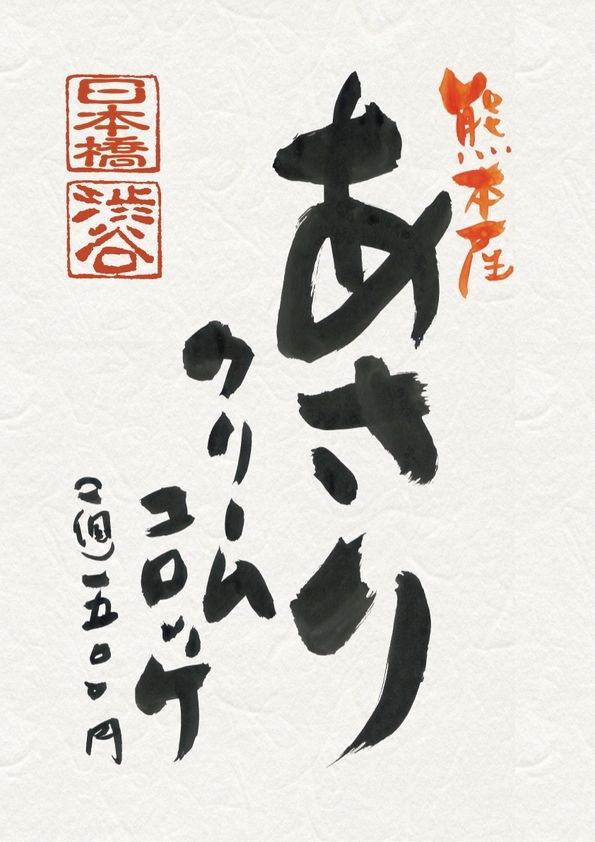 熊本産
あさり
クリーム
コロッケ
個)一五〇〇円
日本橋
渋谷